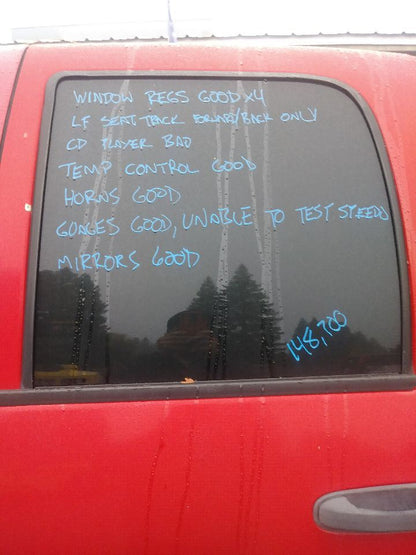 WINDOW REGS GOOD x4
LF SEAT TRACK FORWARD/BACK ONLY
CD PLAYER BAD
TEMP CONTROL GOOD
HORNS GOOD
GUAGES GOOD, UNABLE TO TEST SPEEDO
MIRRORS GOOD
148,700